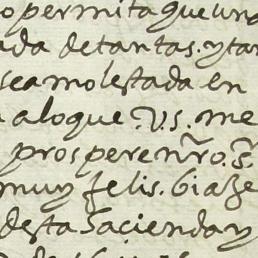 o permita que una
ada de tantas. y tan
sea molestada en
a lo que .V.S. me
prospere nr̃o. S.
muy felis. biaje
desta hacienda y